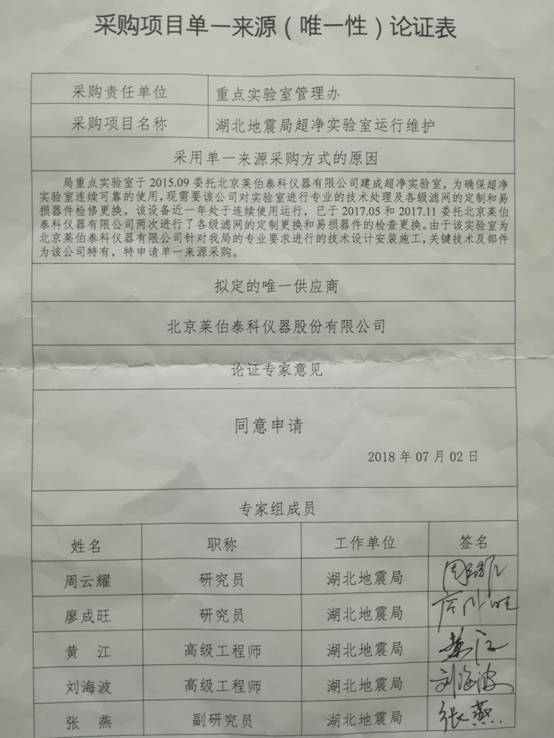 采购项目单一来源（唯一性）论证表
采购责任单位 重点实验室管理办
采购项目名称 湖北地震局超净实验室运行维护
采用单一来源采购方式的原因
局重点实验室于 2015.09 委托北京莱伯泰科仪器有限公司建成超净实验室，为确保超净
实验室连续可靠的使用，现需要该公司对实验室进行专业的技术处理及各级滤网的定制和易
损器件检修更换。该设备近一年处于连续使用运行，已于 2017.05 和 2017.11 委托北京莱伯
泰科仪器有限公司两次进行了各级滤网的定制更换和易损器件的检查更换。由于该实验室为
北京莱伯泰科仪器有限公司针对我局的专业要求进行的技术设计安装施工，关键技术及部件
为该公司特有，特申请单一来源采购。
拟定的唯一供应商
北京莱伯泰科仪器股份有限公司
论证专家意见
同意申请
2018 年 07 月 02 日
专家组成员
姓名 职称 工作单位 签名
周云耀 研究员 湖北地震局 周云耀
廖成旺 研究员 湖北地震局
黄 江 高级工程师 湖北地震局 黄江
刘海波 高级工程师 湖北地震局 刘海波
张 燕 副研究员 湖北地震局 张燕